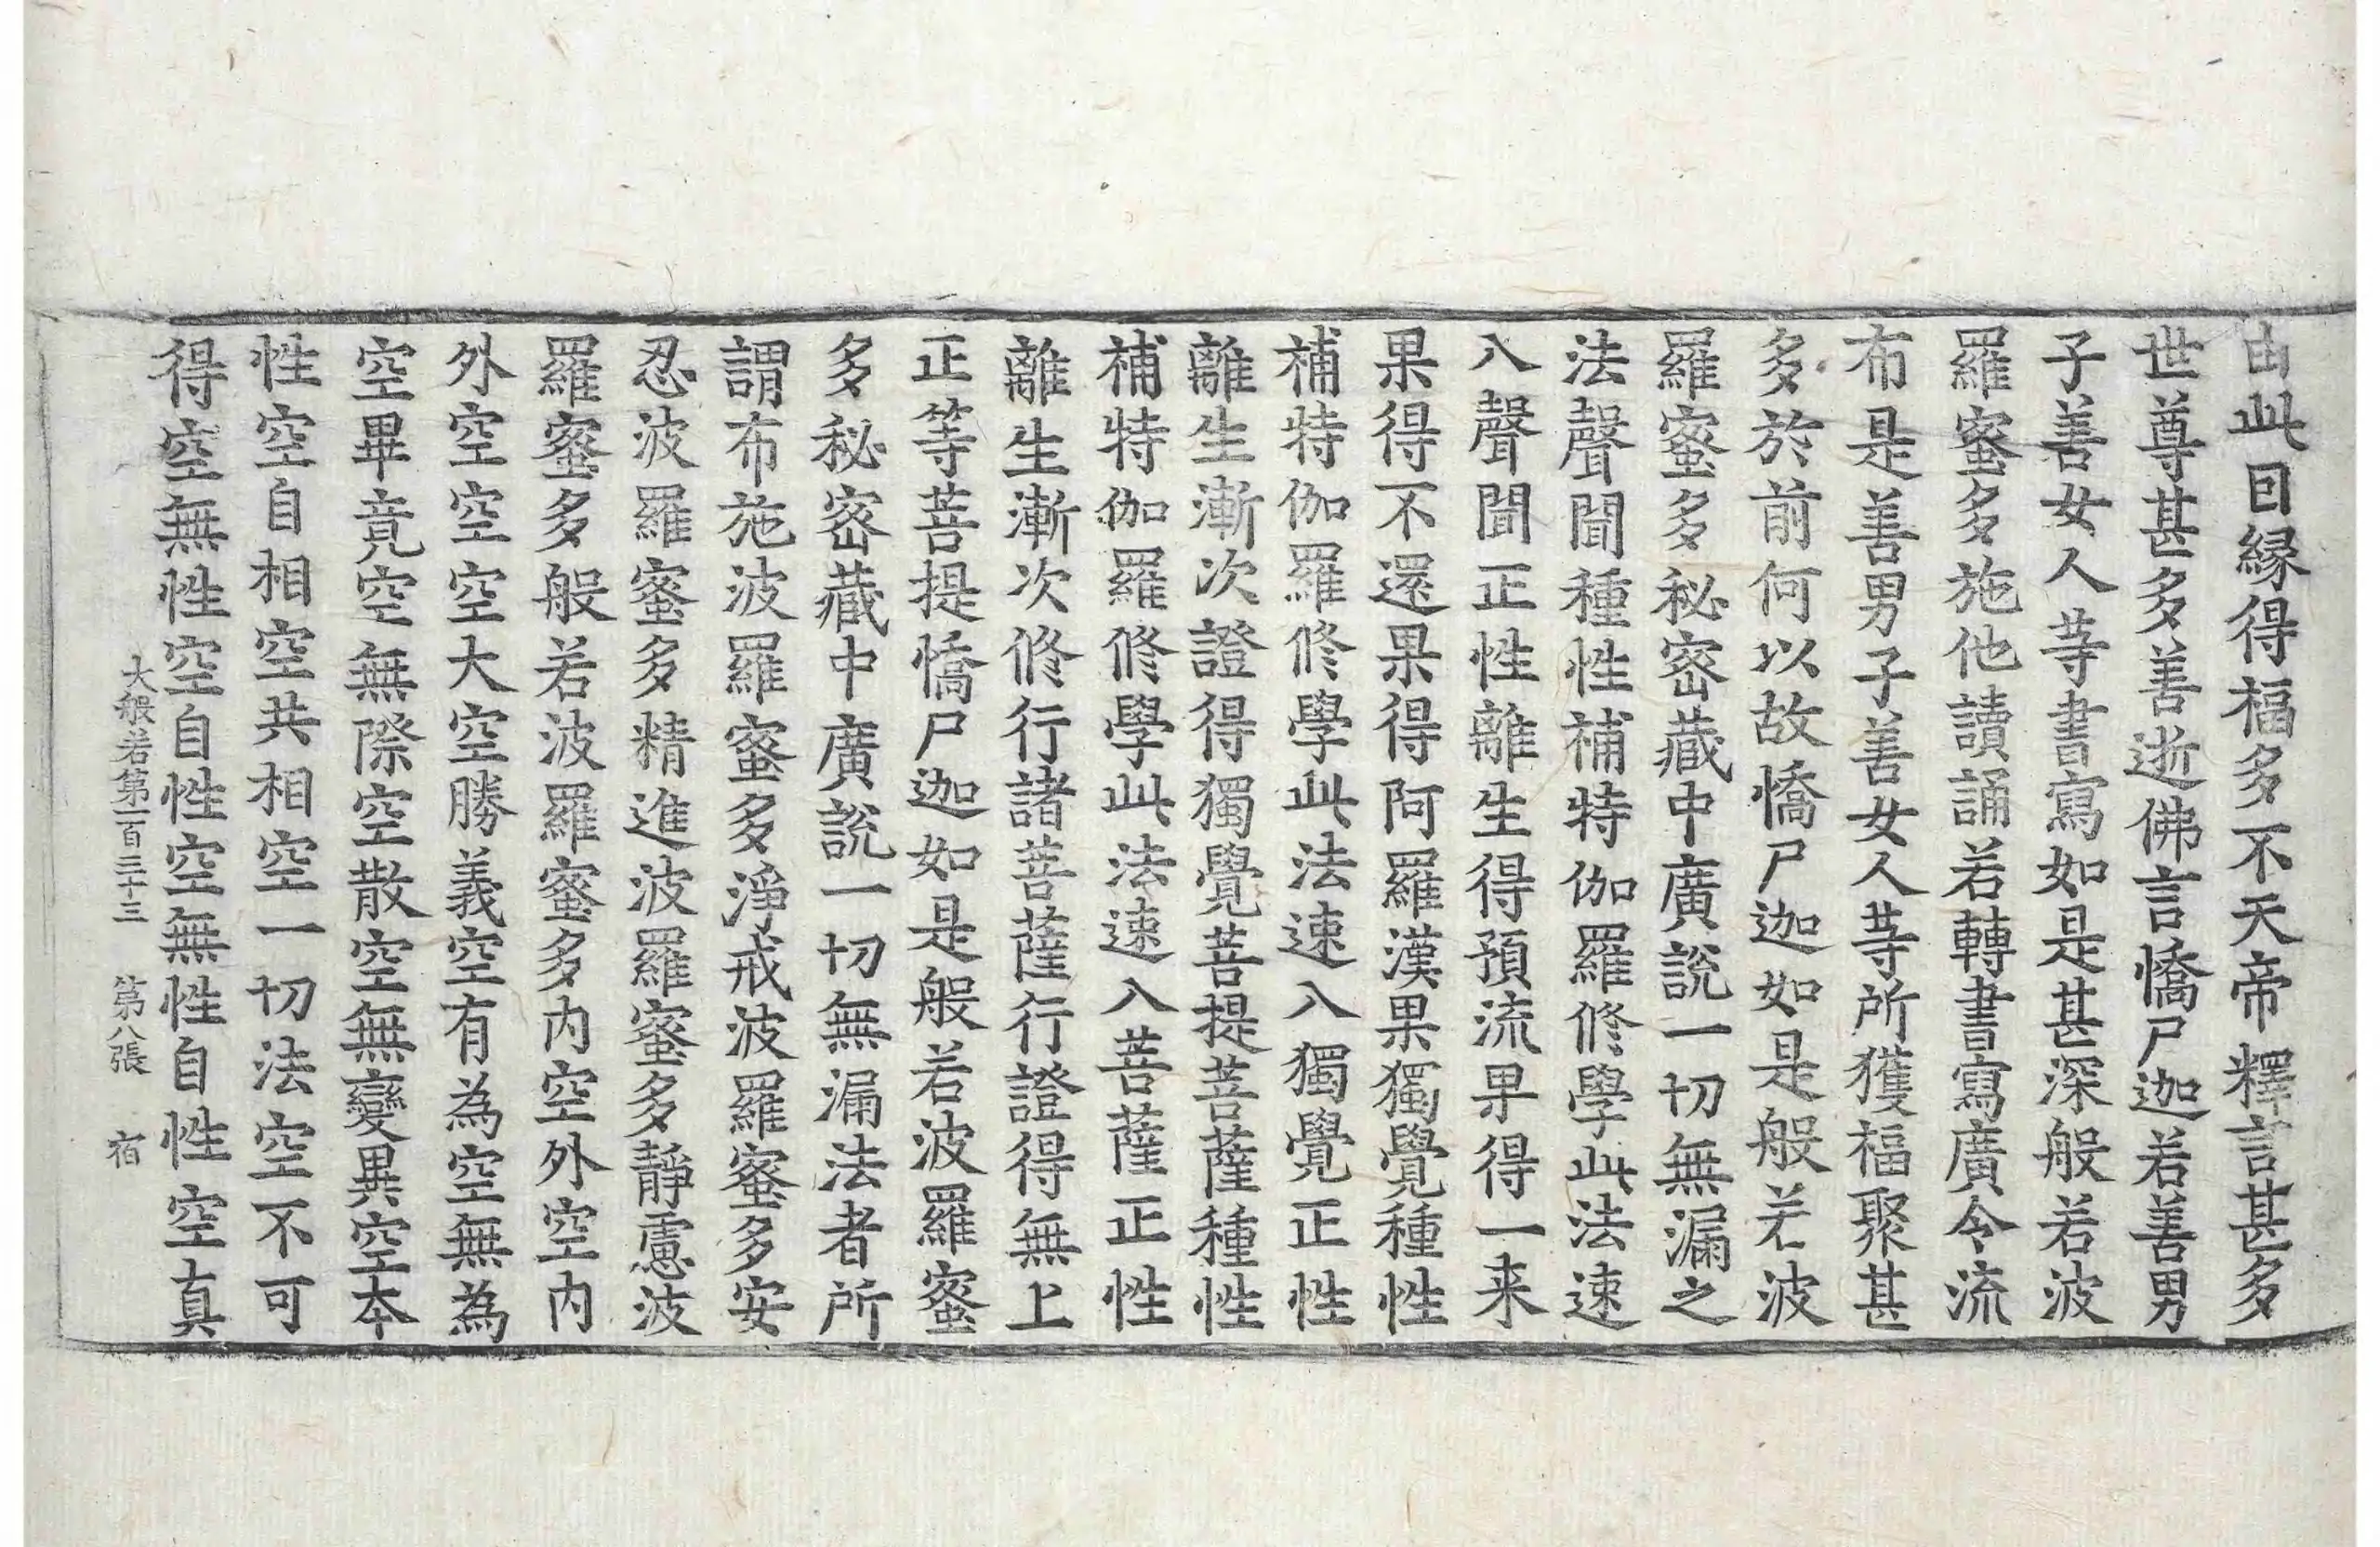 由此因縁得福多不天帝釋言甚多
世尊甚多善逝佛言憍尸迦若善男
子善女人等書寫如是甚深般若波
羅蜜多施他讀誦若轉書寫廣令流
布是善男子善女人等所獲福聚甚
多於前何以故憍尸迦如是般若波
羅蜜多秘密藏中廣說一切無漏之
法聲聞種性補特伽羅修學此法速
入聲聞正性離生得預流果得一来
果得不還果得阿羅漢果獨覺種性
補特伽羅修學此法速入獨覺正性
離生漸次證得獨覺菩提菩薩種性
補特伽羅修學此法速入菩薩正性
離生漸次修行諸菩薩行證得無上
正等菩提憍尸迦如是般若波羅蜜
多秘密藏中廣說一切無漏法者所
謂布施波羅蜜多淨戒波羅蜜多安
忍波羅蜜多精進波羅蜜多靜慮波
羅蜜多般若波羅蜜多內空外空內
外空空空大空勝義空有為空無為
空畢竟空無際空散空無變異空本
性空自相空共相空一切法空不可
得空無性空自性空無性自性空真
大般若第一百三十三　第八張　宿